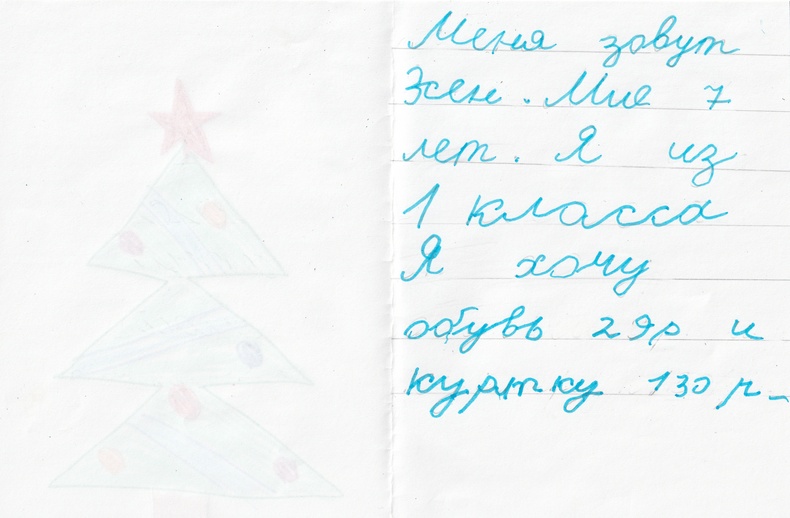 Меня зовут
Эсен. Мне 7
лет. Я из
1 класса
Я хочу
обувь 29р и
куртку 130 р_